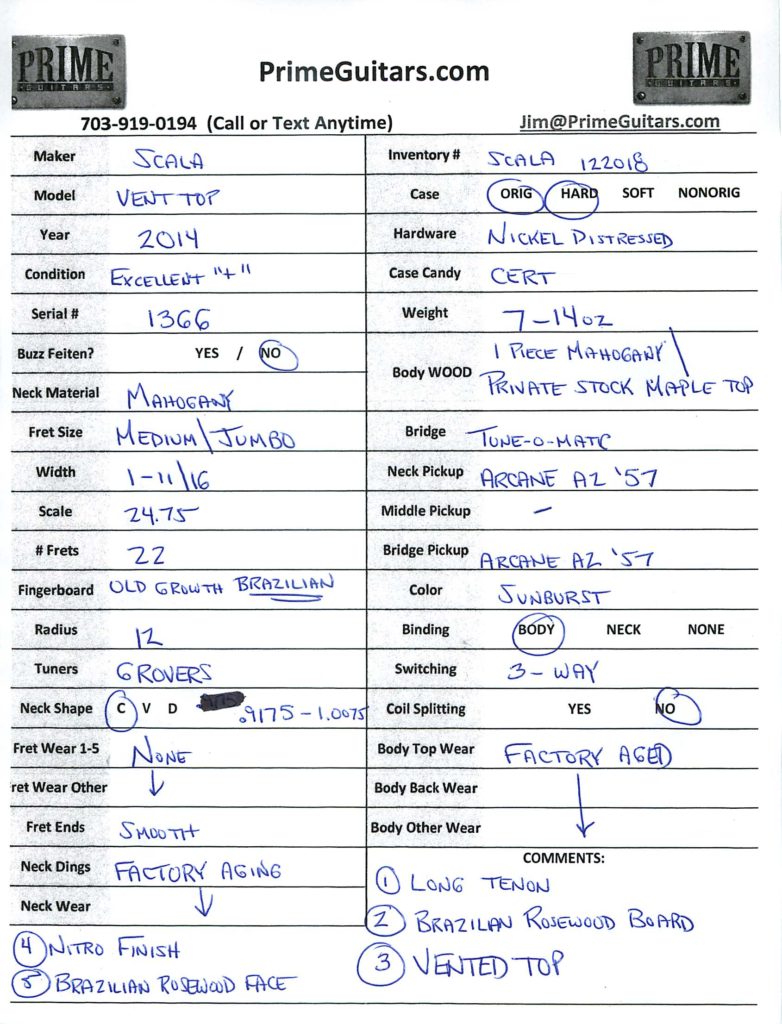 PRIME
GUITARS
PrimeGuitars.com
PRIME
GUITARS
703-919-0194 (Call or Text Anytime) Jim@PrimeGuitars.com
Maker SCALA
Model VENT TOP
Year 2014
Condition EXCELLENT "+"
Serial # 1366
Buzz Feiten? YES / NO
Neck Material MAHOGANY
Fret Size MEDIUM\JUMBO
Width 1-11/16
Scale 24.75
# Frets 22
Fingerboard OLD GROWTH BRAZILIAN
Radius 12
Tuners GROVERS
Neck Shape C V D .9175-1.0075
Fret Wear 1-5 NONE
ret Wear Other ↓
Fret Ends SMOOTH
Neck Dings FACTORY AGING
Neck Wear ↓
Inventory # SCALA 122018
Case ORIG HARD SOFT NONORIG
Hardware NICKEL DISTRESSED
Case Candy CERT
Weight 7-14oz
Body WOOD 1 PIECE MAHOGANY \
PRIVATE STOCK MAPLE TOP
Bridge TUNE-O-MATC
Neck Pickup ARCANE A2 '57
Middle Pickup -
Bridge Pickup ARCANE A2 '57
Color SUNBURST
Binding BODY NECK NONE
Switching 3-WAY
Coil Splitting YES NO
Body Top Wear FACTORY AGED
Body Back Wear ↓
Body Other Wear
COMMENTS:
1 LONG TENON
2 BRAZILAN ROSEWOOD BOARD
3 VENTED TOP
4 NITRO FINISH
5 BRAZILIAN ROSEWOOD FACE